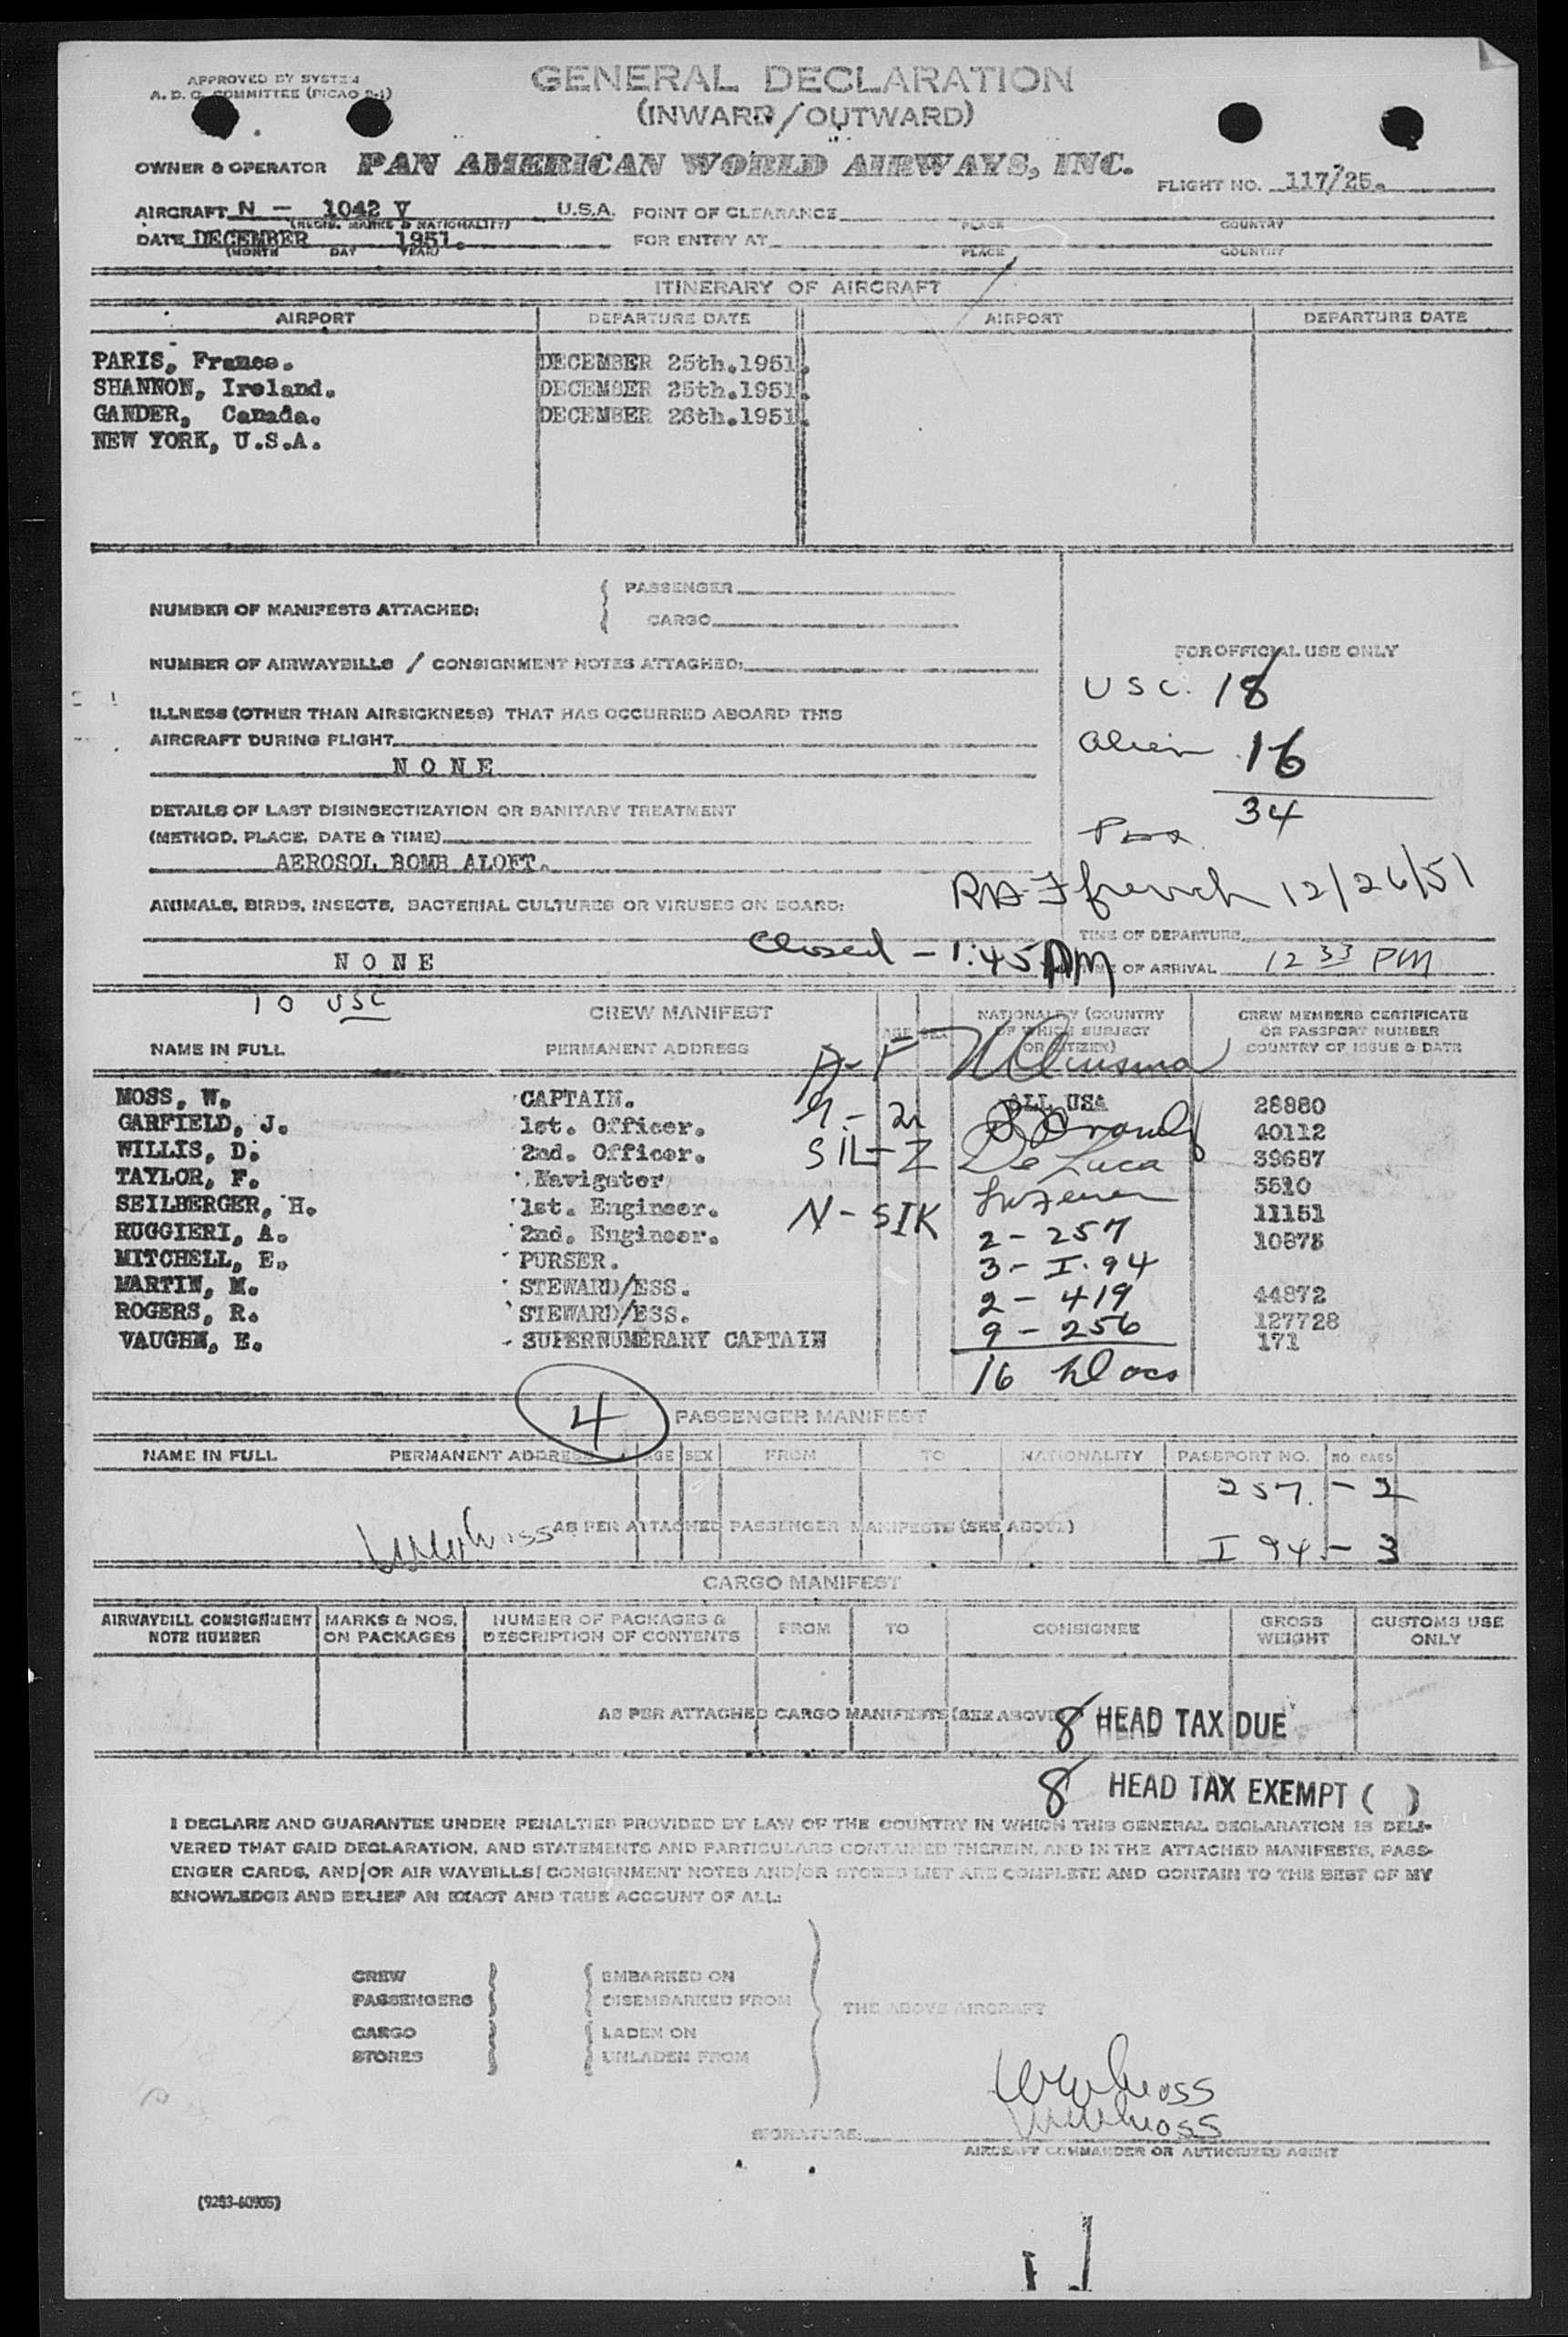 APPROVED BY SYSTEM
A. D. C. COMMITTEE (PICAO 2-1)
GENERAL DECLARATION
(INWARD/OUTWARD)
OWNER & OPERATOR PAN AMERICAN WORLD AIRWAYS, INC.
FLIGHT NO. 117/25.
AIRCRAFT N - 1042 V U.S.A. POINT OF CLEARANCE
(REGIS. MARKS & NATIONALITY) PLACE COUNTRY
DATE DECEMBER 1951. FOR ENTRY AT
(MONTH DAY YEAR) PLACE COUNTRY
ITINERARY OF AIRCRAFT
AIRPORT DEPARTURE DATE AIRPORT DEPARTURE DATE
PARIS, France. DECEMBER 25th.1951.
SHANNON, Ireland. DECEMBER 25th.1951.
GANDER, Canada. DECEMBER 26th.1951.
NEW YORK, U.S.A.
NUMBER OF MANIFESTS ATTACHED: PASSENGER
CARGO
NUMBER OF AIRWAYBILLS / CONSIGNMENT NOTES ATTACHED:
FOR OFFICIAL USE ONLY
USC. 18
ILLNESS (OTHER THAN AIRSICKNESS) THAT HAS OCCURRED ABOARD THIS
AIRCRAFT DURING FLIGHT
Alien 16
NONE
34
DETAILS OF LAST DISINSECTIZATION OR SANITARY TREATMENT
(METHOD, PLACE, DATE & TIME)
Pax
AEROSOL BOMB ALOFT.
french 12/26/51
ANIMALS, BIRDS, INSECTS, BACTERIAL CULTURES OR VIRUSES ON BOARD:
TIME OF DEPARTURE
Closed - 1:45 PM
NONE
TIME OF ARRIVAL 12 33 PM
10 USC
CREW MANIFEST AGE SEX NATIONALITY (COUNTRY OF WHICH SUBJECT OR CITIZEN) CREW MEMBERS CERTIFICATE OR PASSPORT NUMBER COUNTRY OF ISSUE & DATE
NAME IN FULL PERMANENT ADDRESS
MOSS, W. CAPTAIN. ALL USA 28880
GARFIELD, J. 1st. Officer. 40112
WILLIS, D. 2nd. Officer. SIL-Z De Luca 39687
TAYLOR, F. Navigator 5510
SEILBERGER, H. 1st. Engineer. N - SIK 11151
RUGGIERI, A. 2nd. Engineer. 2 - 257 10878
MITCHELL, E. PURSER. 3 - I.94
MARTIN, M. STEWARD/ESS. 2 - 419 44872
ROGERS, R. STEWARD/ESS. 9 - 256 127728
VAUGHN, E. SUPERNUMERARY CAPTAIN 171
16 Docs
4
PASSENGER MANIFEST
NAME IN FULL PERMANENT ADDRESS AGE SEX FROM TO NATIONALITY PASSPORT NO. NO. PASS
257. - 2
AS PER ATTACHED PASSENGER MANIFESTS (SEE ABOVE)
I 94 - 3
CARGO MANIFEST
AIRWAYBILL CONSIGNMENT NOTE NUMBER MARKS & NOS. ON PACKAGES NUMBER OF PACKAGES & DESCRIPTION OF CONTENTS FROM TO CONSIGNEE GROSS WEIGHT CUSTOMS USE ONLY
AS PER ATTACHED CARGO MANIFESTS (SEE ABOVE)
8 HEAD TAX DUE
8 HEAD TAX EXEMPT ( )
I DECLARE AND GUARANTEE UNDER PENALTIES PROVIDED BY LAW OF THE COUNTRY IN WHICH THIS GENERAL DECLARATION IS DELI-
VERED THAT SAID DECLARATION, AND STATEMENTS AND PARTICULARS CONTAINED THEREIN, AND IN THE ATTACHED MANIFESTS, PASS-
ENGER CARDS, AND/OR AIR WAYBILLS/ CONSIGNMENT NOTES AND/OR STORES LIST ARE COMPLETE AND CONTAIN TO THE BEST OF MY
KNOWLEDGE AND BELIEF AN EXACT AND TRUE ACCOUNT OF ALL:
CREW EMBARKED ON
PASSENGERS DISEMBARKED FROM
THE ABOVE AIRCRAFT
CARGO LADEN ON
STORES UNLADEN FROM
SIGNATURE:
AIRCRAFT COMMANDER OR AUTHORIZED AGENT
(9283-60905)